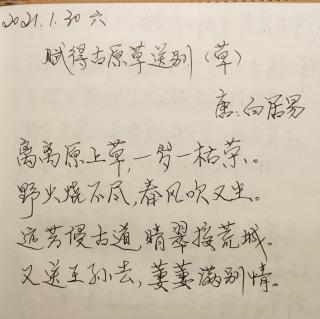 2021.1.30 六
赋得古原草送别（草）
唐:白居易
离离原上草,一岁一枯荣。
野火烧不尽,春风吹又生。
远芳侵古道,晴翠接荒城。
又送王孙去,萋萋满别情。